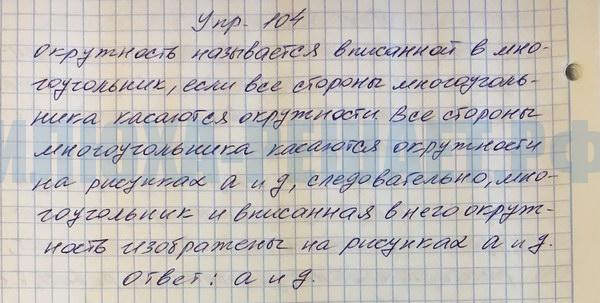 Упр. 104
окружность называется вписанной в мно-
гоугольник, если все стороны многоуголь-
ника касаются окружности. Все стороны
многоугольника касаются окружности
на рисунках а и д, следовательно, мно-
гоугольник и вписанная в него окруж-
ность изображены на рисунках а и д.
Ответ: а и д.